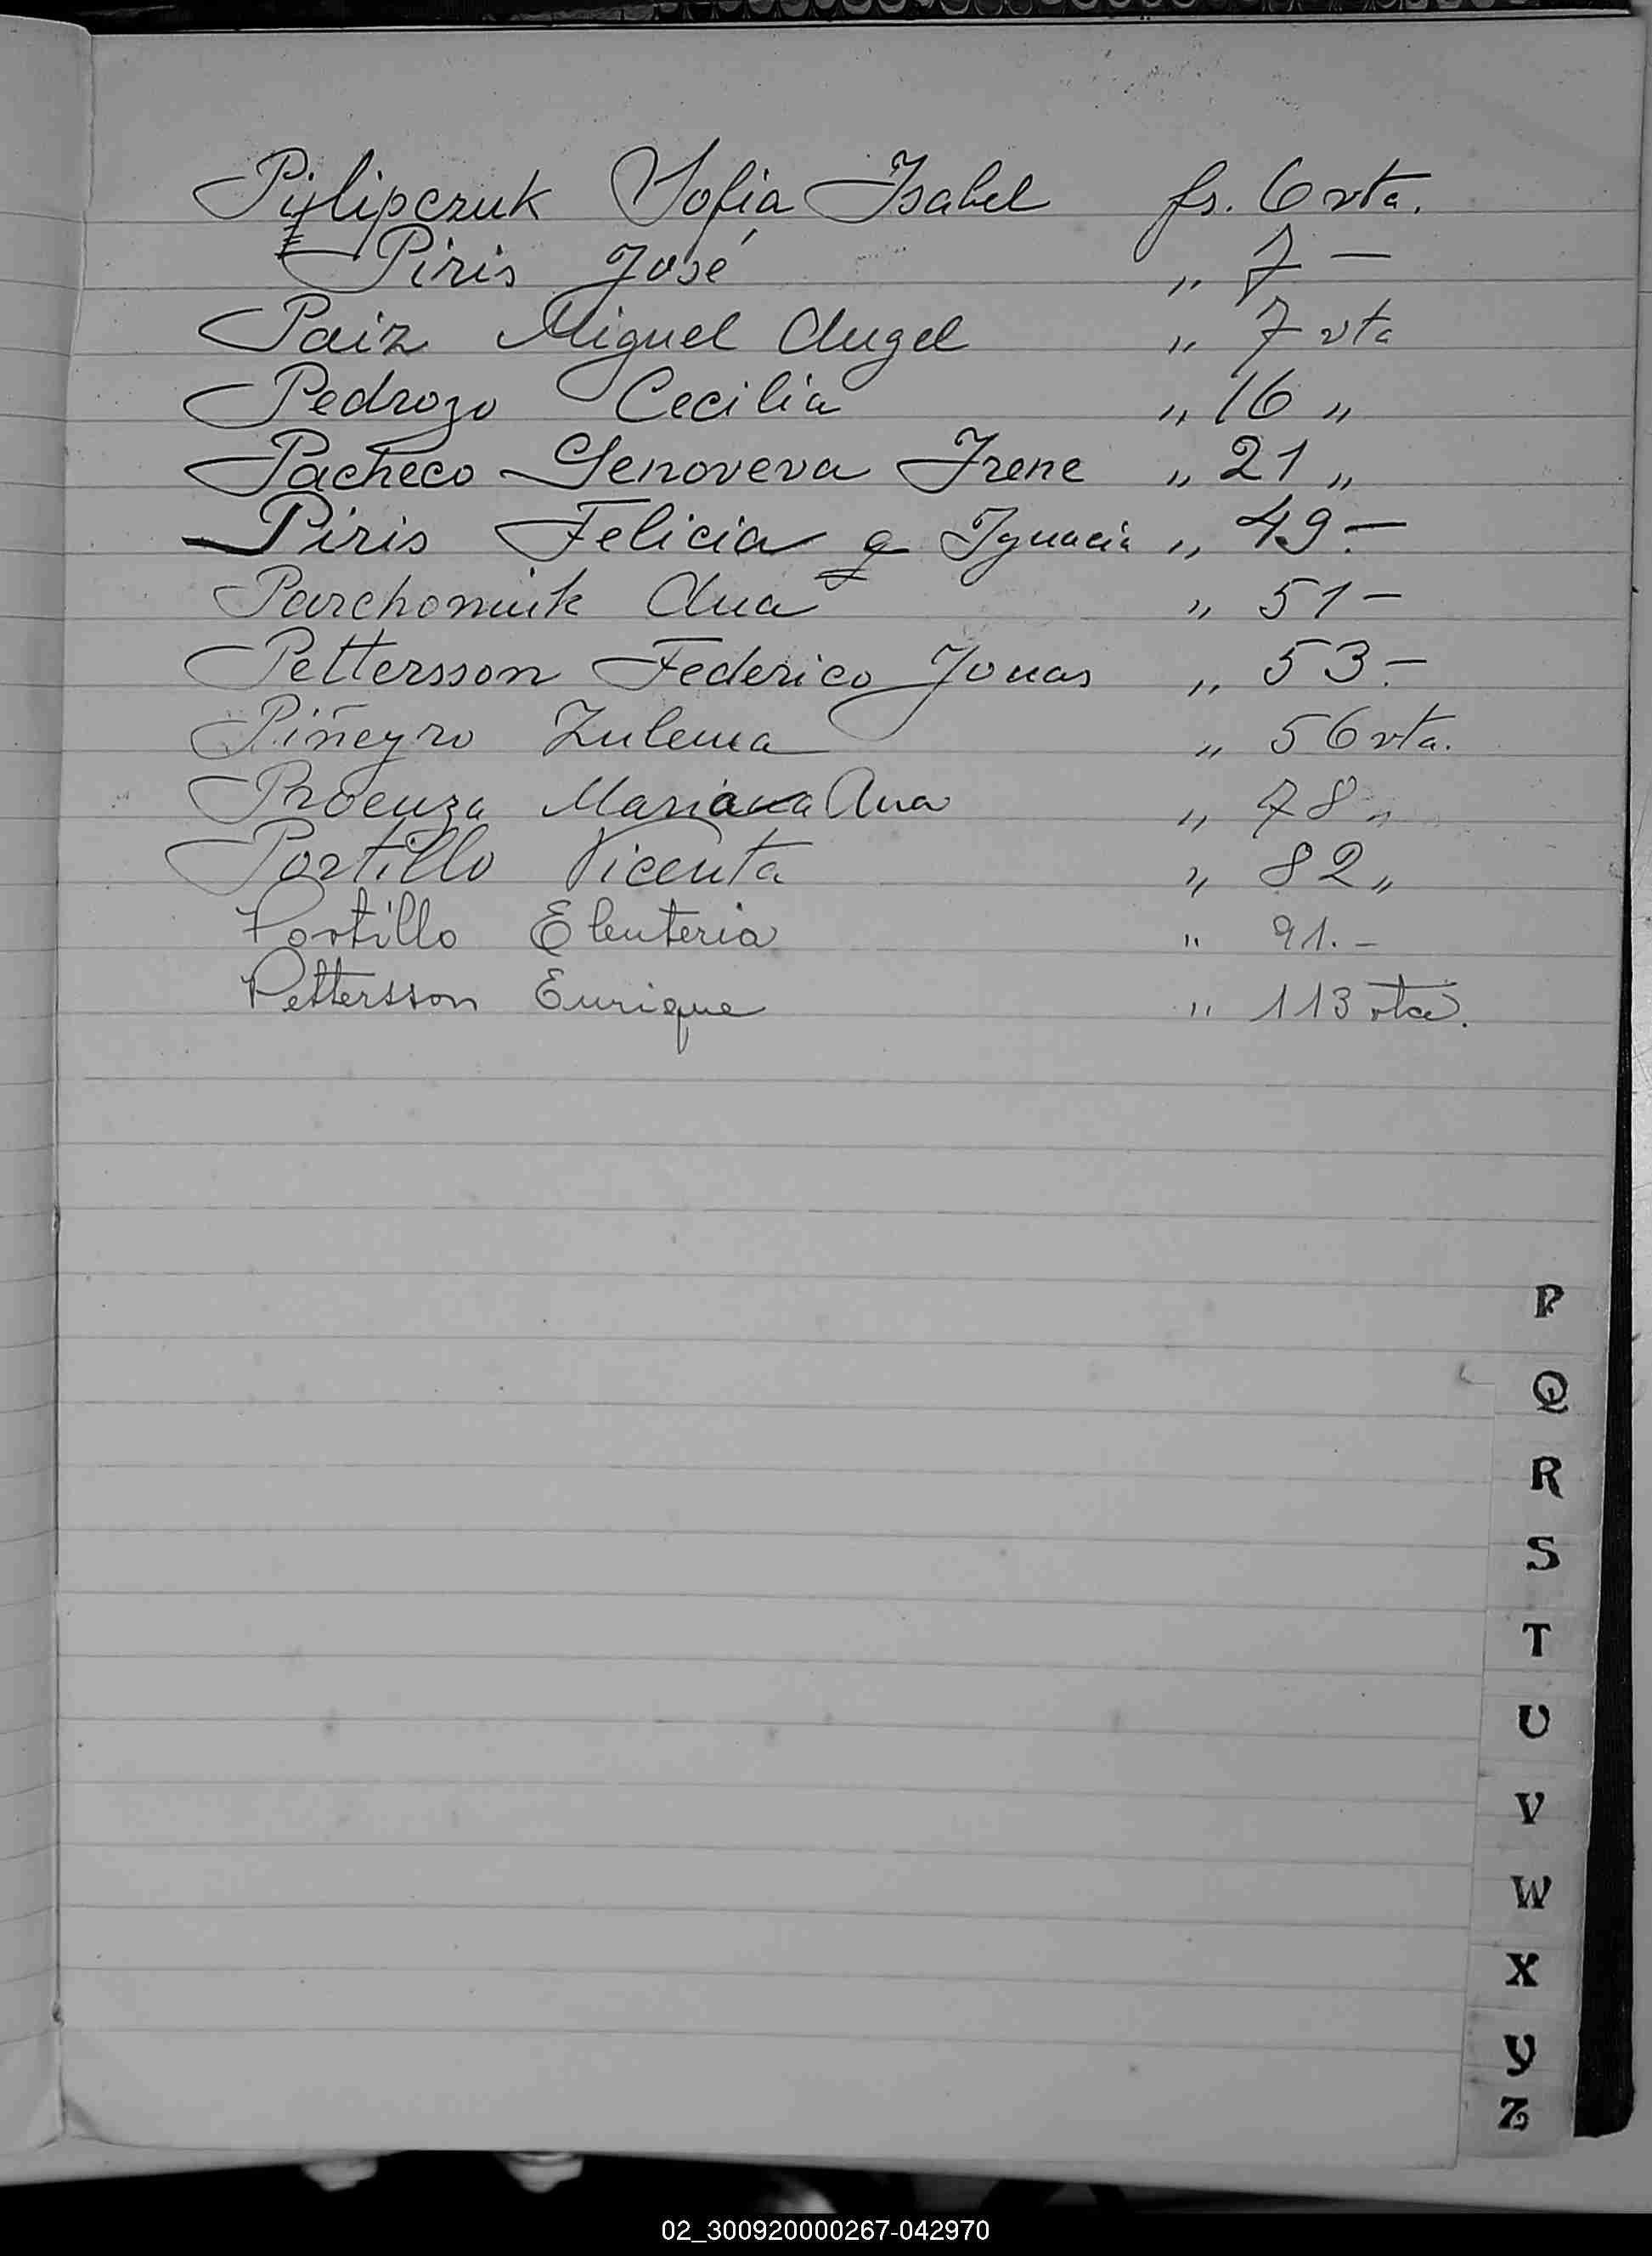 Pylipczuk Sofía Isabel fs. 6 vta.
Piris José " 7 —
Paiz Miguel Angel " 7 vta
Pedrozo Cecilia " 16 "
Pacheco Genoveva Irene " 21 "
Piris Felicia g Ignacia " 49.—
Parchomiuk Ana " 51 —
Pettersson Federico Jonas " 53.—
Piñeyro Zulema " 56 vta.
Proenza Maria Ana " 78 "
Portillo Vicenta " 82 "
Portillo Eleuteria " 91.—
Pettersson Enrique " 113 vta.
P
Q
R
S
T
U
V
W
X
Y
Z
02_300920000267-042970